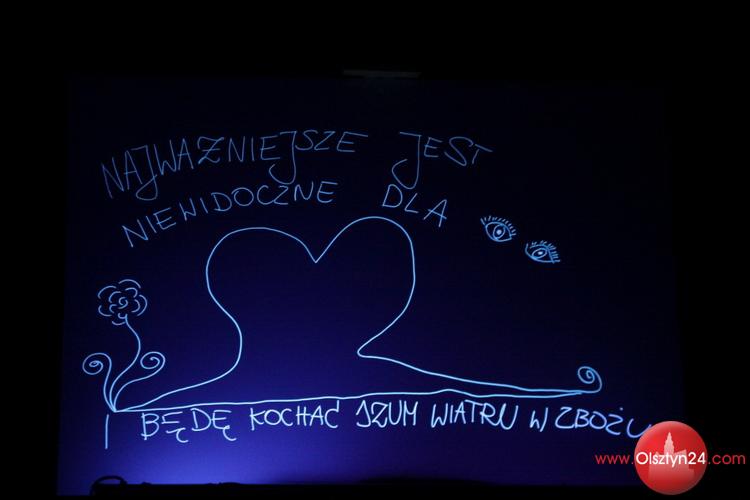 NAJWAŻNIEJSZE JEST
NIEWIDOCZNE DLA
I BĘDĘ KOCHAĆ SZUM WIATRU W ZBOŻU
www.Olsztyn24.com